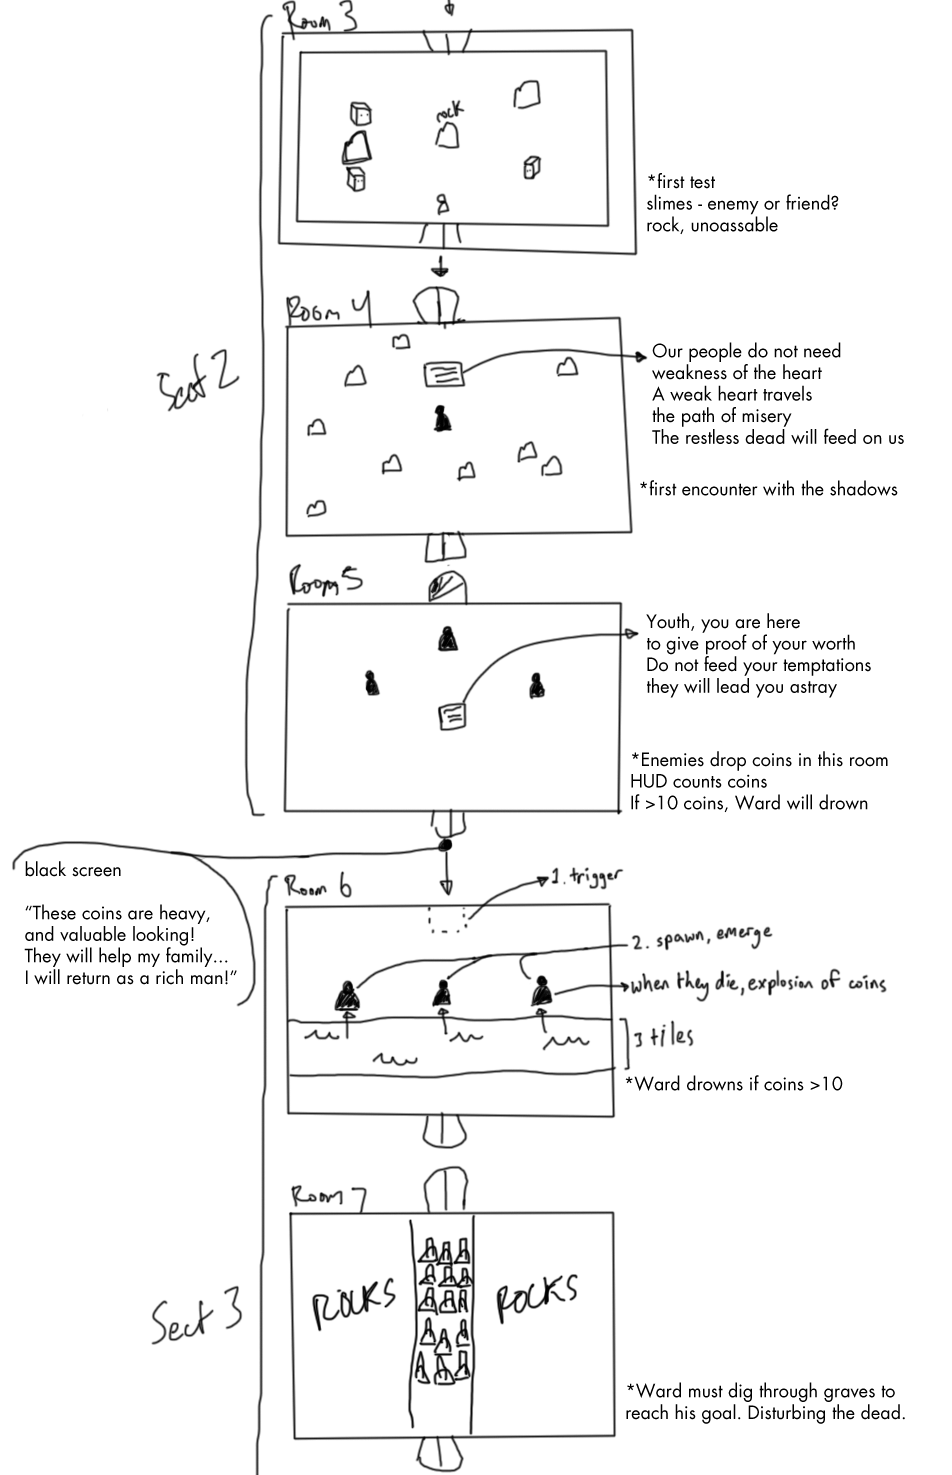 Room 3
rock
*first test
slimes - enemy or friend?
rock, unoassable
Sect 2
Room 4
Our people do not need
weakness of the heart
A weak heart travels
the path of misery
The restless dead will feed on us
*first encounter with the shadows
Room 5
Youth, you are here
to give proof of your worth
Do not feed your temptations
they will lead you astray
*Enemies drop coins in this room
HUD counts coins
If >10 coins, Ward will drown
black screen
“These coins are heavy,
and valuable looking!
They will help my family...
I will return as a rich man!”
Room 6
1. trigger
2. spawn, emerge
when they die, explosion of coins
3 tiles
*Ward drowns if coins >10
Room 7
ROCKS
ROCKS
Sect 3
*Ward must dig through graves to
reach his goal. Disturbing the dead.